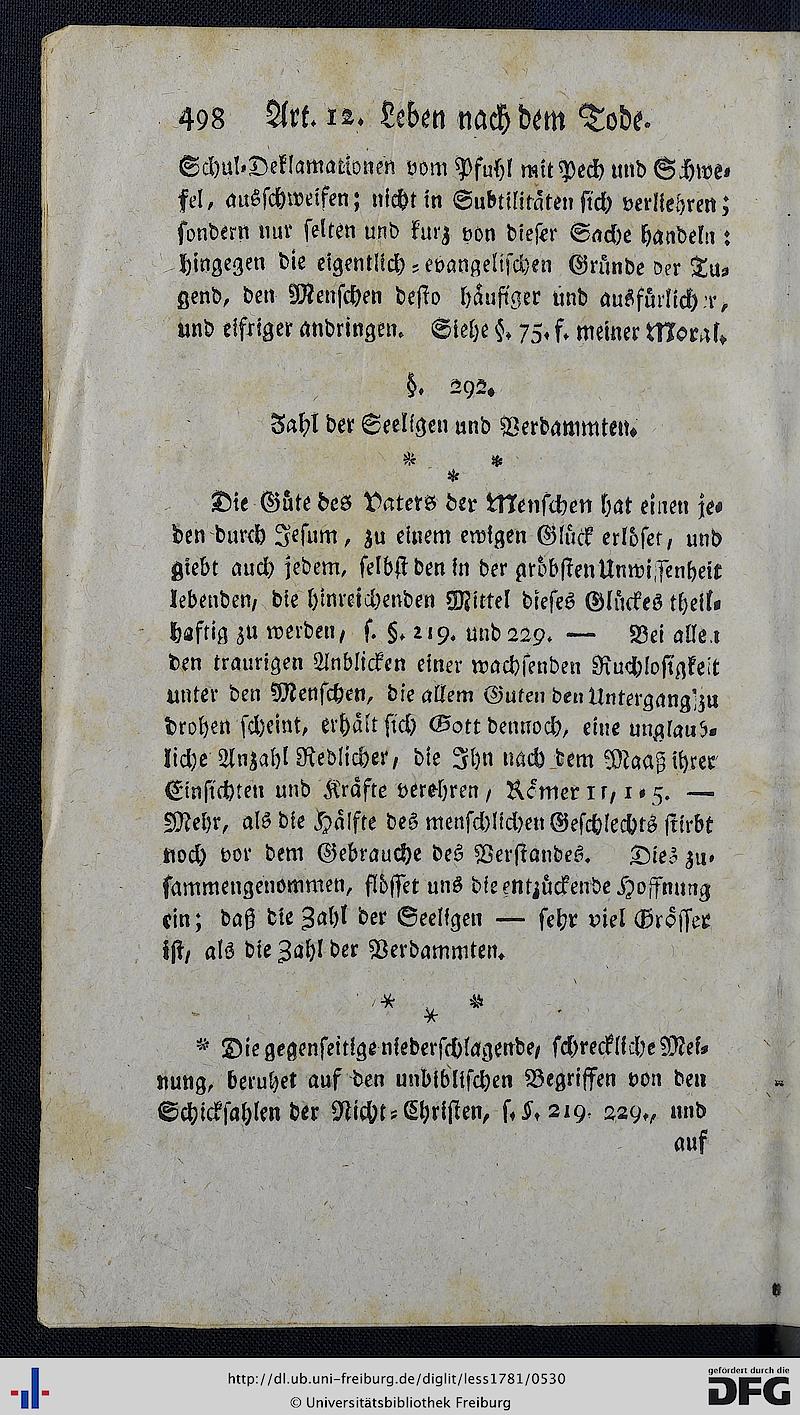 498 Art. 12. Leben nach dem Tode.
Schul-Deklamationen vom Pfuhl mit Pech und Schwe-
fel, ausschweifen; nicht in Subtilitäten sich verliehren;
sondern nur selten und kurz von dieser Sache handeln:
hingegen die eigentlich-evangelischen Gründe der Tu-
gend, den Menschen desto häufiger und ausfürlicher,
und eifriger andringen. Siehe §. 75. f. meiner Moral.
§. 292.
Zahl der Seeligen und Verdammten.
* *
*
Die Güte des Vaters der Menschen hat einen je-
den durch Jesum, zu einem ewigen Glück erlöset, und
giebt auch jedem, selbst den in der gröbsten Unwissenheit
lebenden, die hinreichenden Mittel dieses Glückes theil-
haftig zu werden, s. §. 219. und 229. — Bei allen
den traurigen Anblicken einer wachsenden Ruchlosigkeit
unter den Menschen, die allem Guten den Untergang zu
drohen scheint, erhält sich Gott dennoch, eine unglaub-
liche Anzahl Redlicher, die Ihn nach dem Maaß ihrer
Einsichten und Kräfte verehren, Römer 11, 1-5. —
Mehr, als die Hälfte des menschlichen Geschlechts stirbt
noch vor dem Gebrauche des Verstandes. Dies zu-
sammengenommen, flösset uns die entzückende Hoffnung
ein; daß die Zahl der Seeligen — sehr viel Grösser
ist, als die Zahl der Verdammten.
* *
*
* Die gegenseitige niederschlagende, schreckliche Mei-
nung, beruhet auf den unbiblischen Begriffen von den
Schicksahlen der Nicht-Christen, s. §. 219. 229., und
auf
http://dl.ub.uni-freiburg.de/diglit/less1781/0530
© Universitätsbibliothek Freiburg
gefördert durch die
DFG